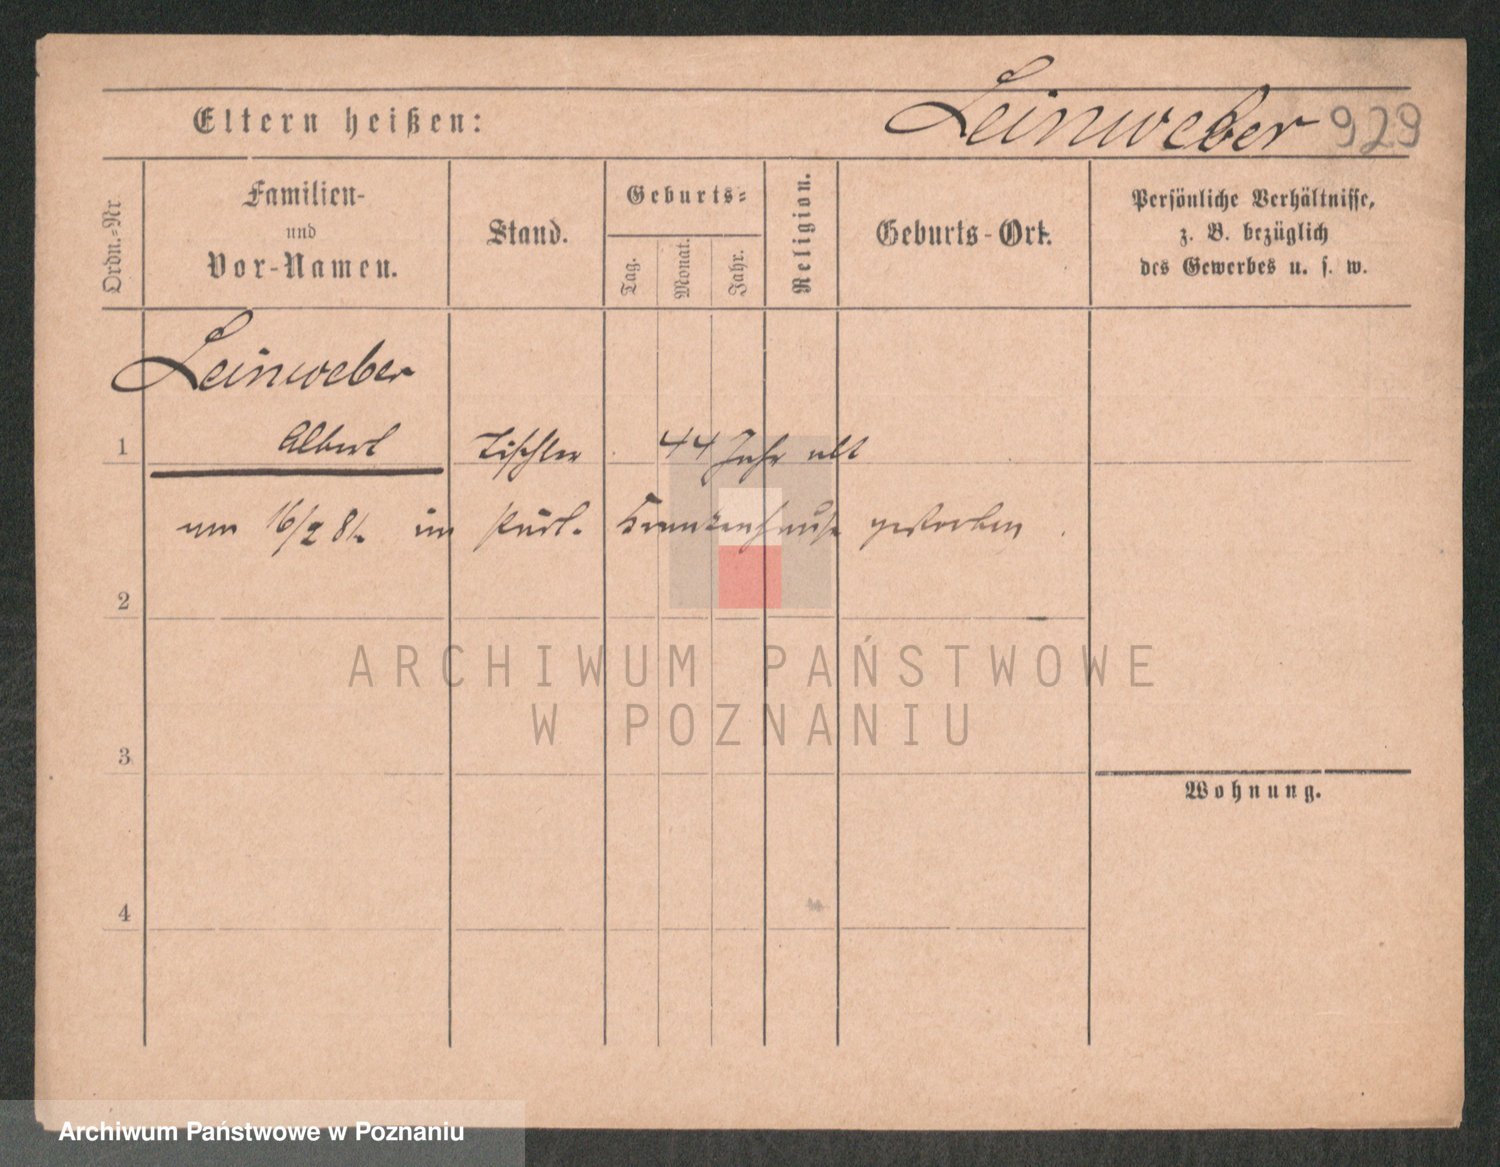 Leinweber 929
Eltern heißen:
Ordn.=Nr
Familien-
und
Vor-Namen.
Stand.
Geburts=
Tag.
Monat.
Jahr.
Religion.
Geburts-Ort.
Persönliche Verhältnisse,
z. B. bezüglich
des Gewerbes u. s. w.
Leinweber
1 Albert Tischler 44 Jahr alt
am 16/2 81. im städt. Krankenhause gestorben.
2
ARCHIWUM PAŃSTWOWE
W POZNANIU
3
Wohnung.
4
Archiwum Państwowe w Poznaniu